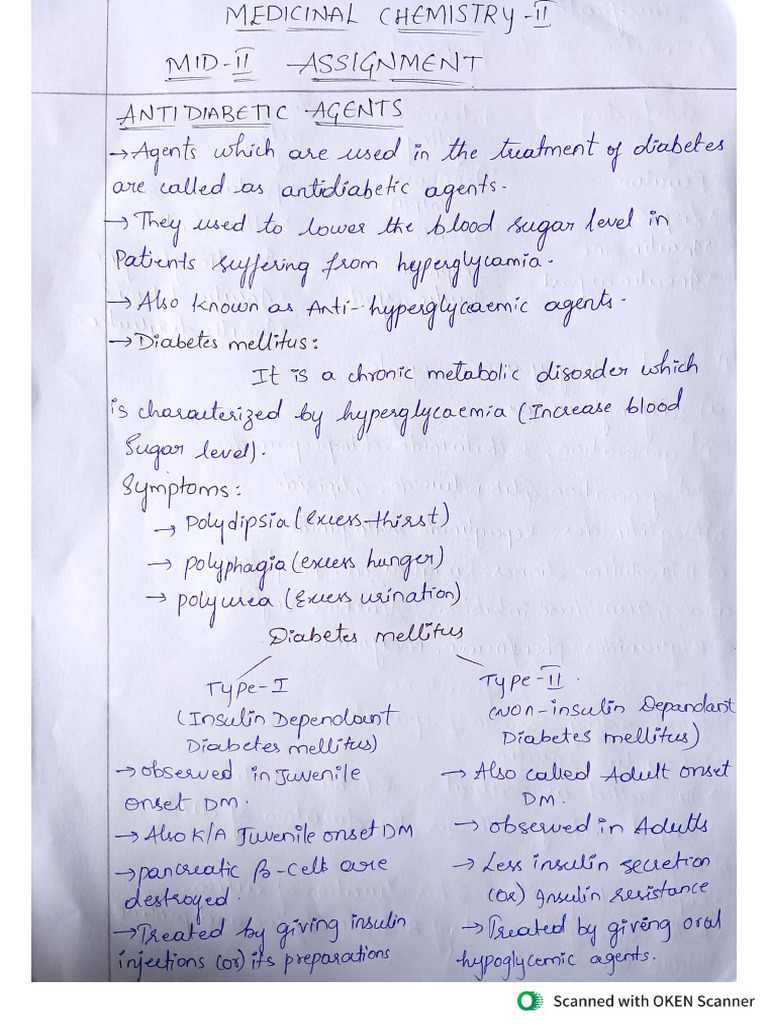 MEDICINAL CHEMISTRY-II
MID-II ASSIGNMENT
ANTIDIABETIC AGENTS
→Agents which are used in the treatment of diabetes
are called as antidiabetic agents.
→They used to lower the blood sugar level in
Patients suffering from hyperglycamia.
→Also known as Anti-hyperglycaemic agents.
→Diabetes mellitus:
It is a chronic metabolic disorder which
is characterized by hyperglycaemia (Increase blood
Sugar level).
Symptoms:
→ Polydipsia (excess thirst)
→ polyphagia (excess hunger)
→ polyurea (Excess urination)
Diabetes mellitus
Type-I
(Insulin Dependant
Diabetes mellitus)
→observed in Juvenile
onset DM.
→Also K/A Juvenile onset DM
→pancreatic β-cells are
destroyed.
→Treated by giving insulin
injections (or) its preparations
Type-II.
(Non-insulin Depandant
Diabetes mellitus)
→ Also called Adult onset
DM.
→ observed in Adults
→ Less insulin secretion
(or) Insulin resistance
→Treated by giving oral
hypoglycemic agents.
Scanned with OKEN Scanner